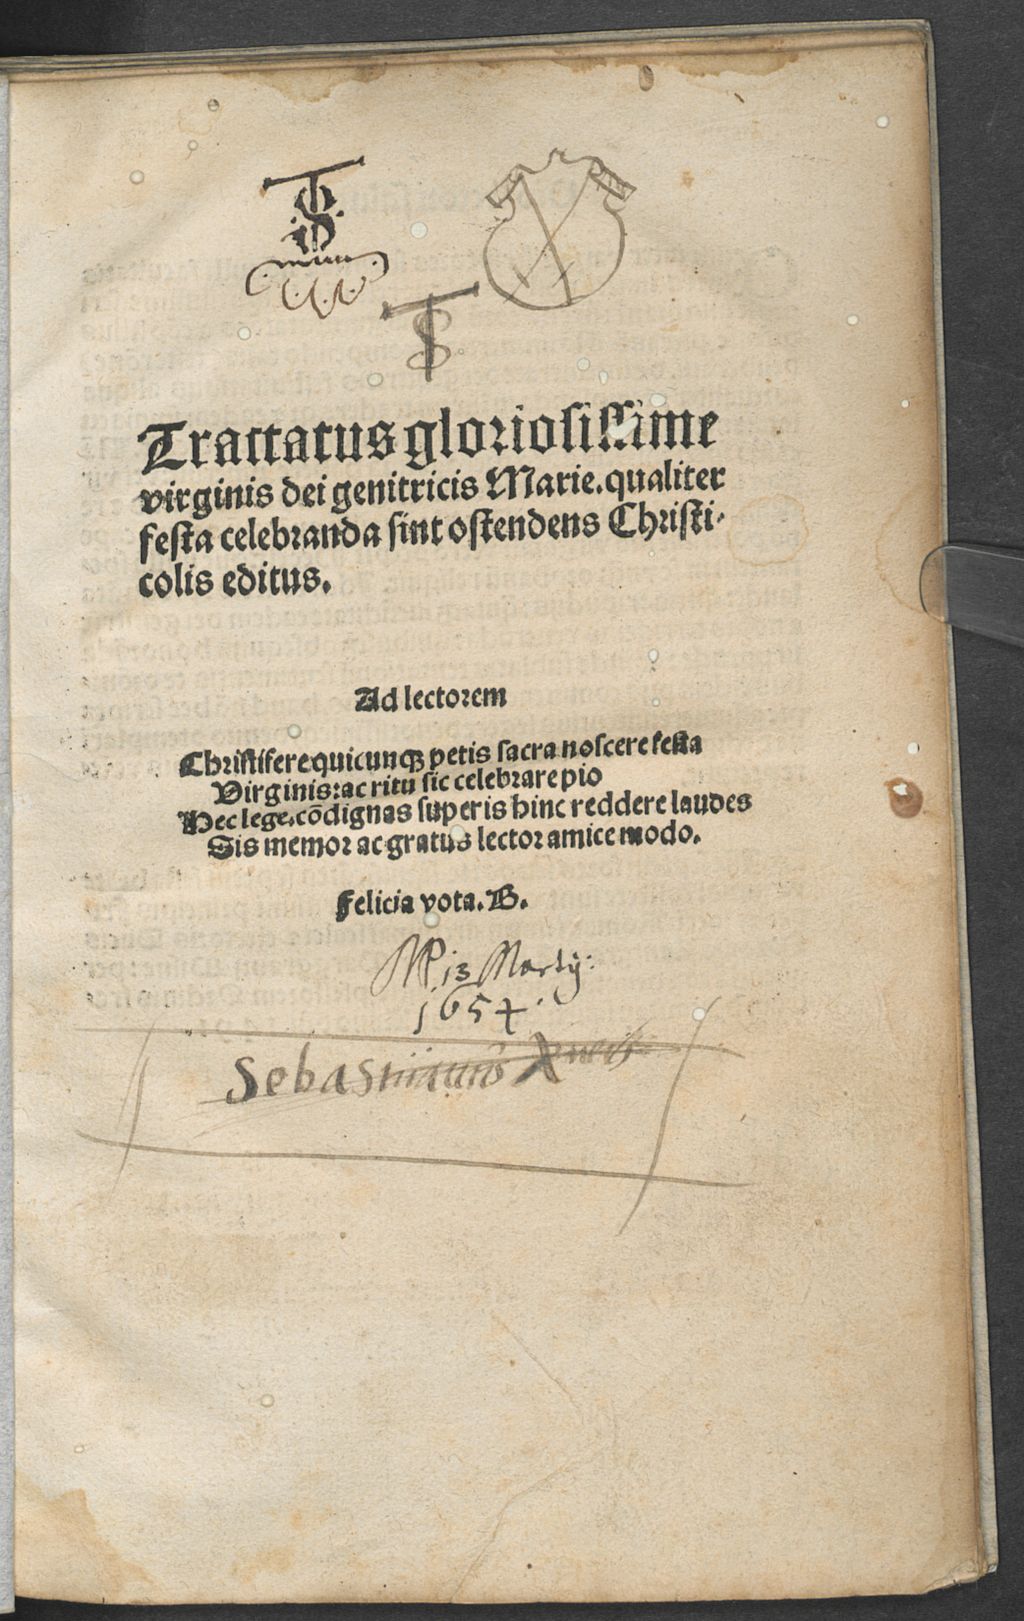 TS
TS
Tractatus gloriosissime
virginis dei genitricis Marie. qualiter
festa celebranda sint ostendens Christi-
colis editus.
Ad lectorem
Christifere quicunqꝫ petis sacra noscere festa
Virginis: ac ritu sic celebrare pio
Hec lege. cōdignas superis hinc reddere laudes
Sis memor ac gratus lector amice modo.
Felicia vota. B.
13 Martij:
1654.
Sebastiianus